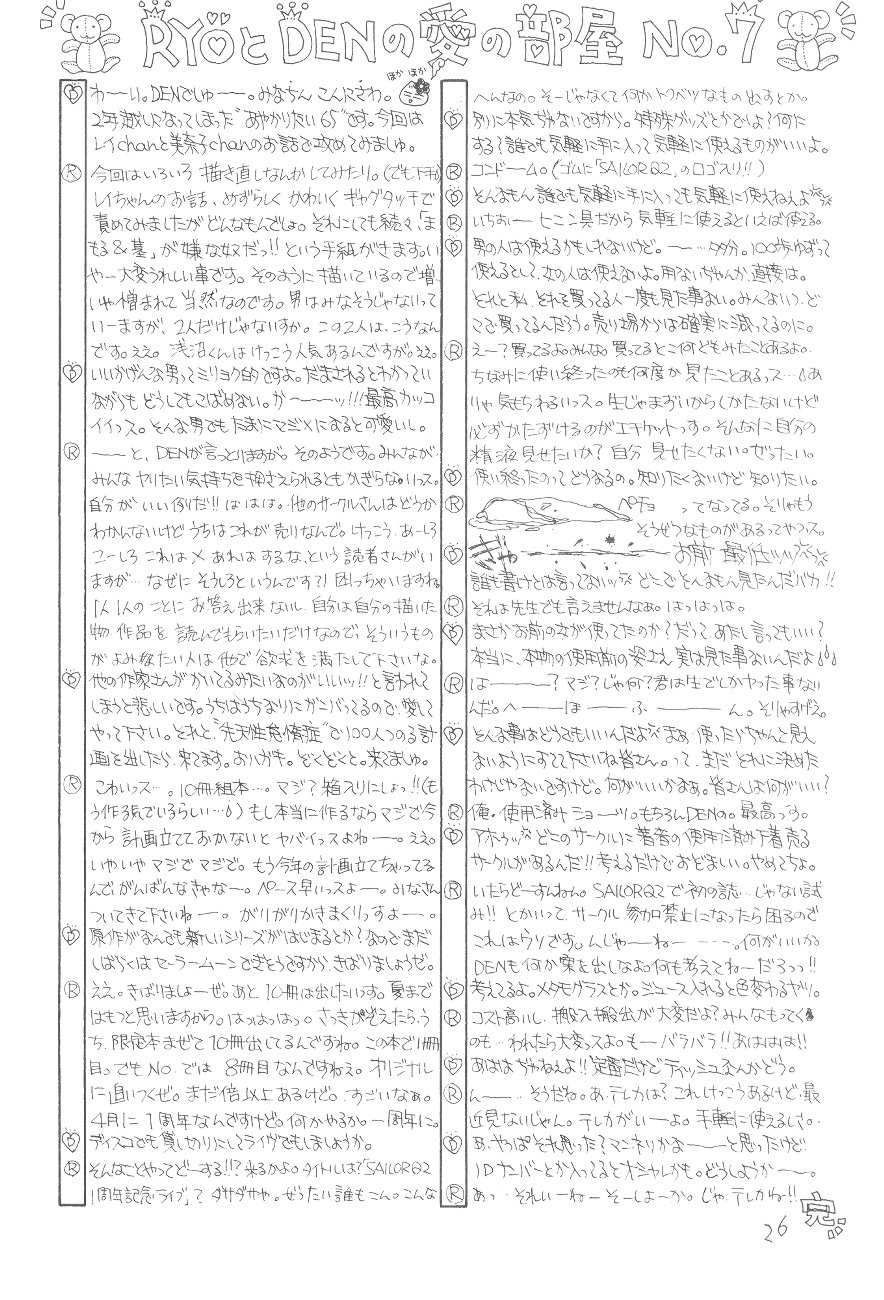 RYOとDENの愛の部屋 No.7
ほか ほか
D わーい。DENでしゅー。みなちん こんにちわ。
2年越しになってしまった"あやかりたい65"です。今回は
レイchanと美奈子chanのお話で攻めてみましゅ。
R 今回はいろいろ 描き直しなんかしてみたり。(でも下手)
レイちゃんのお話、めずらしく かわいく ギャグタッチで
責めてみましたが どんなもんでしょ。それにしても続々、「ま
もる&基」が嫌な奴だっ!!という手紙がきます。い
やー大変うれしい事です。そのように描いているので増
いや憎まれて当然なのです。男はみなそうじゃないって
いーますが、2人だけじゃないすか。この2人は、こうなん
です。ええ。浅沼くんはけっこう人気あるんですが。ええ。
D いいかげんな男ってミリョク的ですよ。だまされるとわかってい
ながらも どうしてもこばめない。が〜〜〜ッ!!!最高カッコ
イイっス。そんな男でもたまにマジメになると可愛いし。
R 〜〜と、DENが言っとりますが。そのようです。みんなが
みんな ヤリたい気持ちを押さえられるともかぎらないっス。
自分がいい例だ!!ははは。他のサークルさんはどうか
わかんないけど うちはこれが売りなんで。けっこう、あーしろ
こーしろ これはダメ あれはするな、という読者さんがい
ますが… なぜに そうしろというんです?! 困っちゃいますね
1人1人のことに お答え出来ないし、自分は自分の描いた
物 作品を 読んでもらいたいだけなので、そういうもの
がよみたい人は他で欲求を満たして下さいな。
D 他の作家さんがかいてるみたいなのがいいッ!!と言われて
しまうと悲しいです。うちはうちなりにガンバってるので、愛して
やって下さい。それと"先天性怠惰症"で100人つのる計
画を出したら、来てます。おハガキ。ぞくぞくと。来てましゅ。
R こわいっス…。10冊組本…。マジ?箱入りにしょっ!!(も
う作る気でいるらしい…) もし本当に作るならマジで今
から 計画立てておかないと ヤバイっスよねー。ええ。
いやいや マジでマジで。もう今年の計画立てちゃってる
んで がんばんなきゃなー。ペース早いっスよー。みなさん
ついてきて下さいねー。がりがりかきまくりっすよー。
D 原作がなんでも新しいシリーズがはじまるとか?なのでまだ
しばらくはセーラームーンでできそうですから、きばりましょうぜ。
R ええ。きばりましょーぜ。あと10冊は出したいっす。夏まで
はもつと思いますから。はっはっはっ。さっきかぞえたら、う
ち、限定本まぜて10冊出してるんですね。この本で11冊
目。でもNo.では 8冊目なんですねえ。オリジナル
に追いつくぜ。まだ倍以上あるけど。すごいなぁ。
4月に1周年なんですけど。何かやるか。一周年に。
D ディスコでも貸しきりにしてライヴでもしましょうか。
R そんなことやってどーする!!?来るかよ。タイトルは?「SAILORQ2
1周年記念ライブ」? ダサダサや。ぜったい誰もこん。こんな
へんなの。そーじゃなくて何かトクベツなもの出すとか。
D 別に本気ぢゃないですから。特殊グッズとかでしょ?何に
する?誰でも気軽に手に入って気軽に使えるものがいいよ。
R コンドーム。(ゴムに「SAILORQ2」のロゴスリ!!)
D そんなもん誰でも気軽に手に入っても気軽に使えねえよ
R いちおー ヒニン具だから気軽に使えるといえば使える。
D 男の人は使えるかもしれないけど。〜…多分。100歩ゆずって
使えるとして、女の人は使えないよ。用ないぢゃんか、直接は。
それと私 それを買ってる人一度も見た事ない。みんないつ、ど
こで買ってるんだろう。売り場からは確実に減ってるのに。
R え〜?買ってるよ。みんな。買ってるとこ何どもみたことあるよ。
ちなみに使い終ったのも何度か 見たことあるっス…あ
りゃ 気もちわるいっス。生じゃまずいからしかたないけど
必ずかたずけるのがエチケットっす。そんなに自分の
精液見せたいか?自分 見せたくない。ぜったい。
D 使い終ったのってどうなるの。知りたくないけど 知りたい。
R ペチョ ってなってる。そりゃもう
そうぜつなものがあるってやつス。
D ぎゃ お前 最低ッッ
誰も書けとは言ってないッ どこでそんなもん見たんだバカ!!
R それは先生でも言えませんなぁ。はっはっは。
D まさかお前の女が使ってたのか?だって、あたし言ってもいい?
本当に、本物の使用前の姿さえ 実は見た事ないんだよ
R は———?マジ?じゃ何?君は生でしかヤった事ない
んだ。へ——ほ——ふ———ん。そりゃすげえ。
D そんな事はどうでもいいんだよ まぁ 使ったらちゃんと見え
ないようにすてて下さいね皆さん。って、まだ それに決めた
わけじゃないですけど。何がいいかなぁ。皆さんは何がいい?
R 俺・使用済みショーツ。もちろんDENの。最高っす。
D アホゥッ どこのサークルに著者の使用済み下着売る
サークルがあるんだ!!考えるだけでおどましい。やめてちょ。
R いたらどーすんねん。SAILORQ2で初の読…じゃない試
み!! とかいって、サークル参加禁止になったら困るので
これはウソです。んじゃーねー ……。何がいいか
DENも何か案を出しなよ。何も考えてねーだろっっ!!
D 考えてるよ。メタモグラスとか。ジュース入れると色変わるヤツ。
R コスト高いし、搬入搬出が大変だよ?みんなもってく
のも…われたら大変っスよ。もーバラバラ!!あははは!!
D あははぢゃねえよ!!定番だけどティッシュなんかどう。
R ん〜… そうだね。あ、テレカは?これけっこうあるけど・最
近見ないじゃん。テレカがいーよ。手軽に使えるしさ。
D あ、やっぱそれ思った?マンネリかな——と思ったけど
IDナンバーとか入ってるとオシャレかも。どうしようか〜。
R あっ…それいーねーそーしよーか。じゃ、テレカね!!
完
26